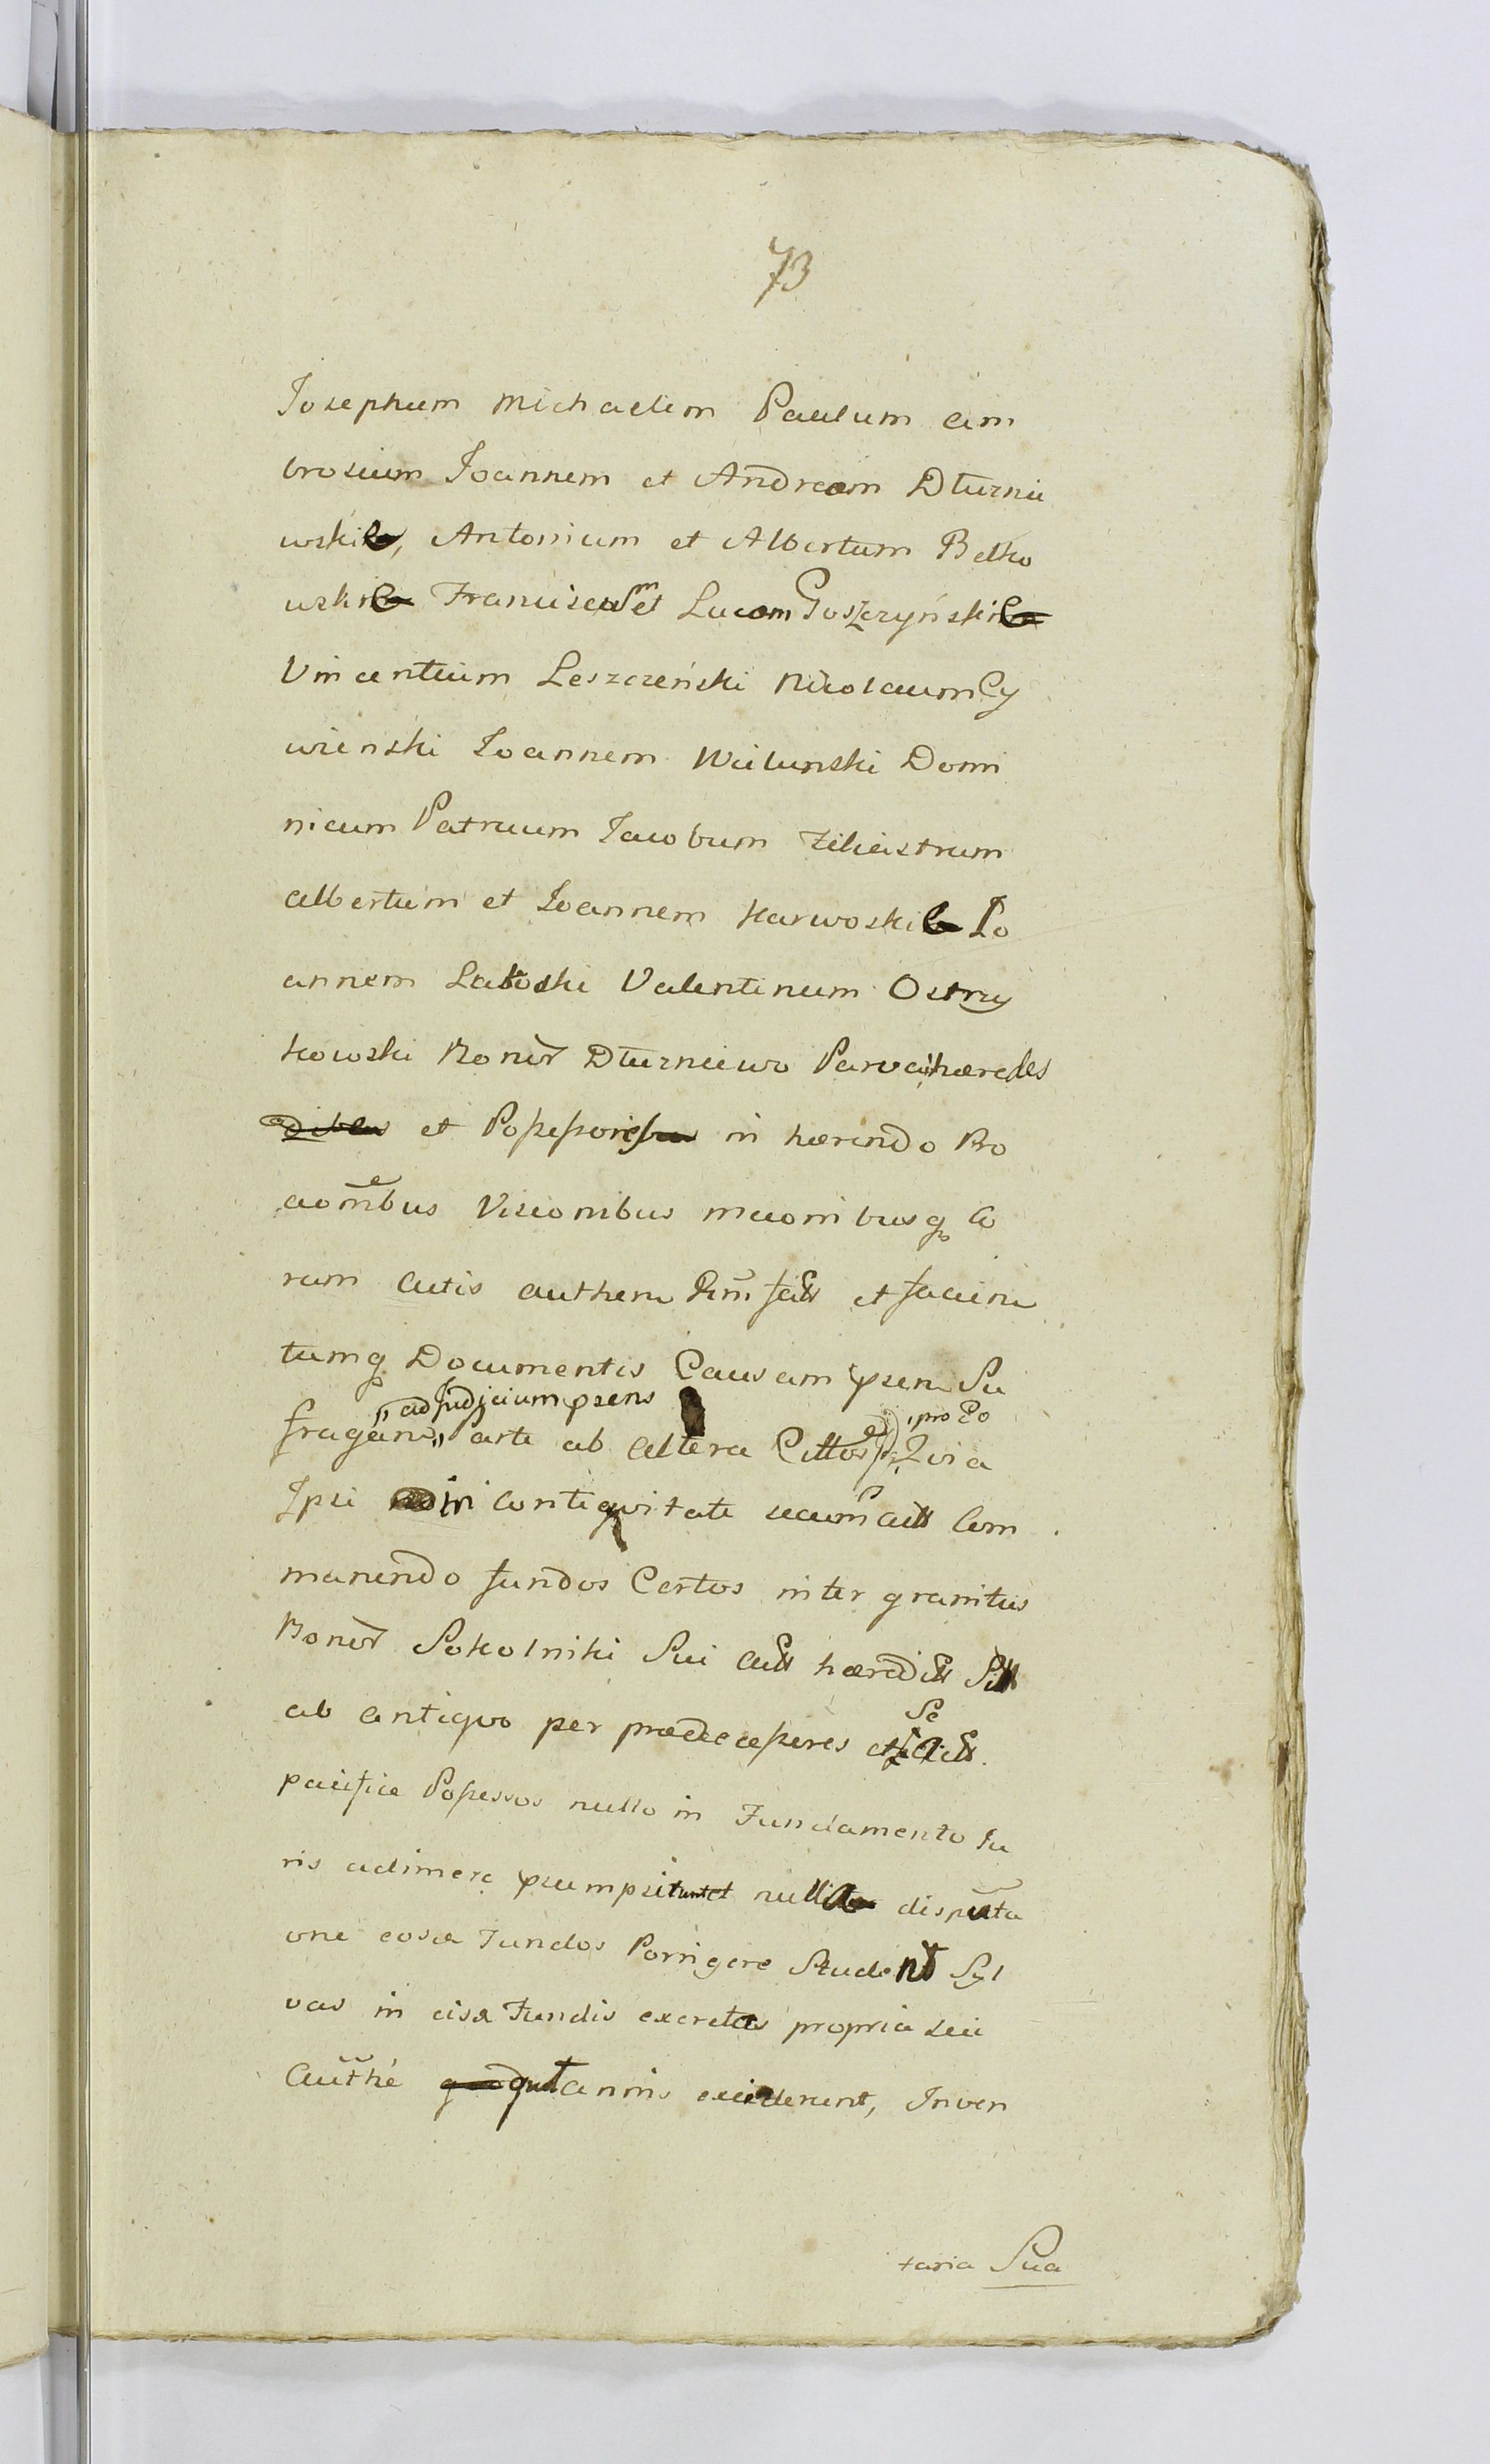 73
Josephum Michaelem Paulum Am
brosium Joannem et Andream Dturnie
wski, Antonium et Albertum Betko
wski Franciscum et Lucam Goszczyński
Vincentium Leszczeński Nicolaum Cy
wienski Joannem Wilunski Domi
nicum Patruum Jacobum
Albertum et Joannem Karwoski Jo
annem Latoski Valentinum Ostry
kowski Bonor Dturniewo Parva hæredes
et Possessores in hærendo Pro
Visionibus
rum Actis authen et
tumq Documentis Causam psen Su
ad Judicium psens
fragan arte ab altera Cittos pro Eo
Ipsi in Contiguitate secum Com
manendo fundos Certos inter granities
Bonor Sokolniki Sui hæred
Se
ab antiquo per prædecessores et
pacifice Possessos nullo in Fundamento Ju
ris adimere psumpserunt et nulla disputa
one eosd Fundos Porrigere Student Syl
vas in eisd Fundis excretas propria sua
Authe quot annis exciderunt, Inven
taria Sua